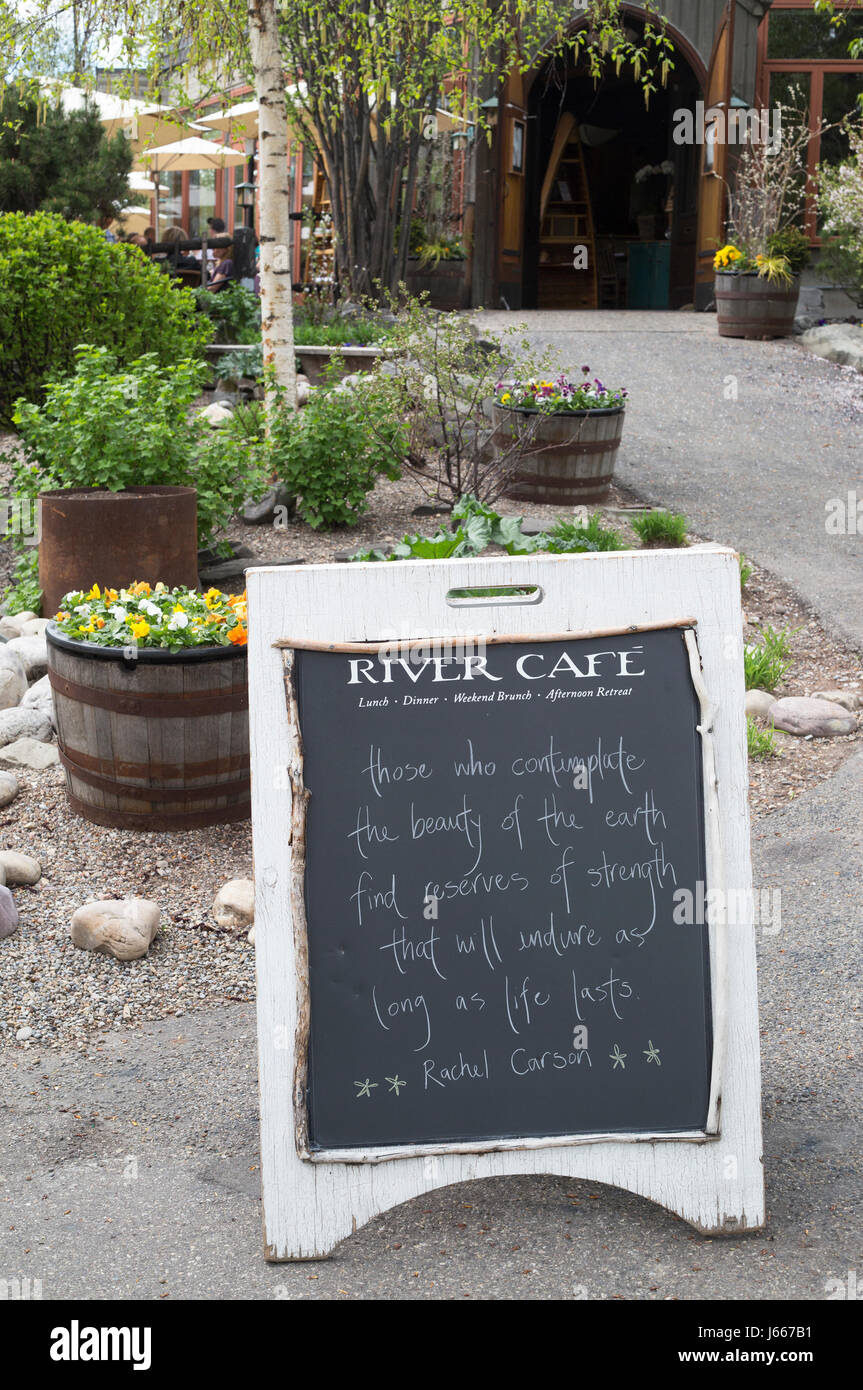 RIVER CAFÉ
Lunch · Dinner · Weekend Brunch · Afternoon Retreat
those who contemplate
the beauty of the earth
find reserves of strength
that will indure as
long as life lasts.
Rachel Carson
alamy
Image ID: J667B1
www.alamy.com